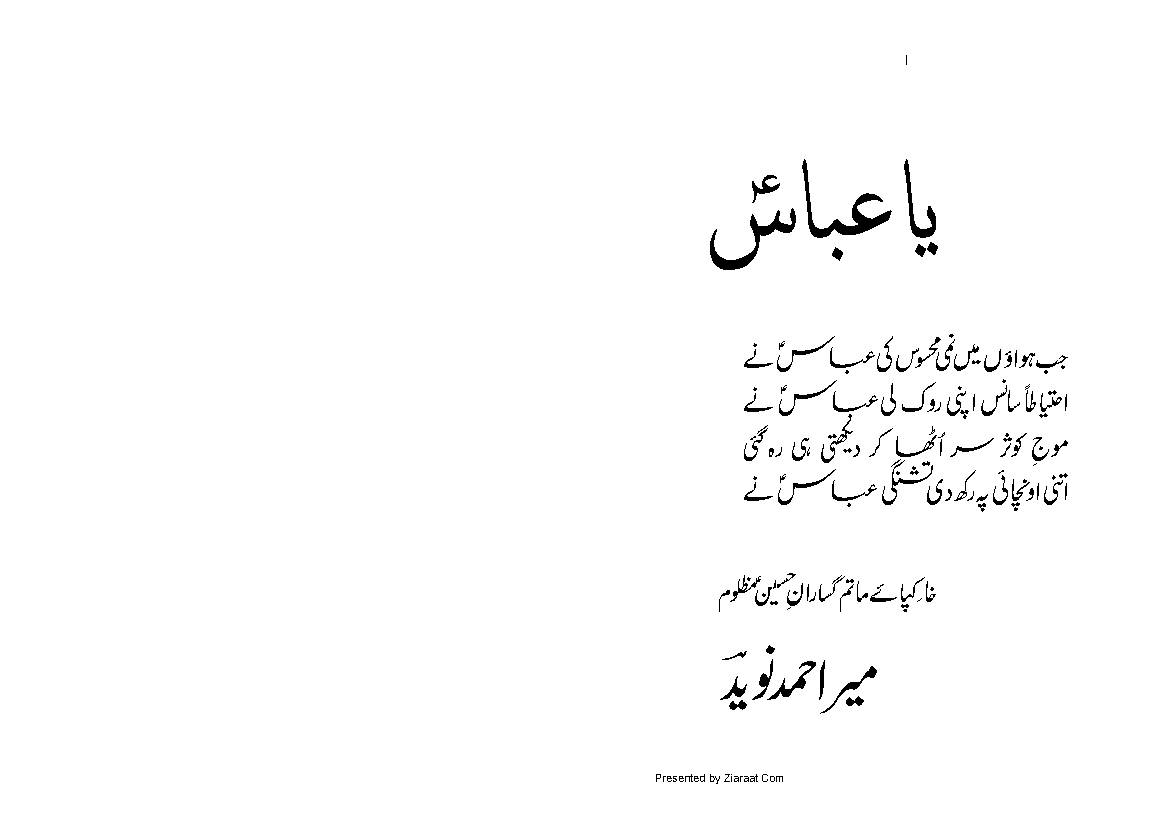 یا عباسؑ
جب ہواؤں میں نمی محسوس کی عباسؑ نے
احتیاطاً سانس اپنی روک لی عباسؑ نے
موجِ کوثر سر اُٹھا کر دیکھتی ہی رہ گئی
اتنی اونچائی پہ رکھ دی تشنگی عباسؑ نے
خارکپائے ماتم گسارانِ حسینؑ مظلوم
میر احمد نویدؔ
Presented by Ziaraat Com